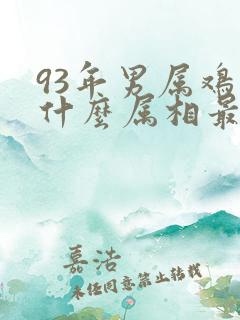 93年男属鸡
什麼属相最
嘉洁
未经同意禁止转载